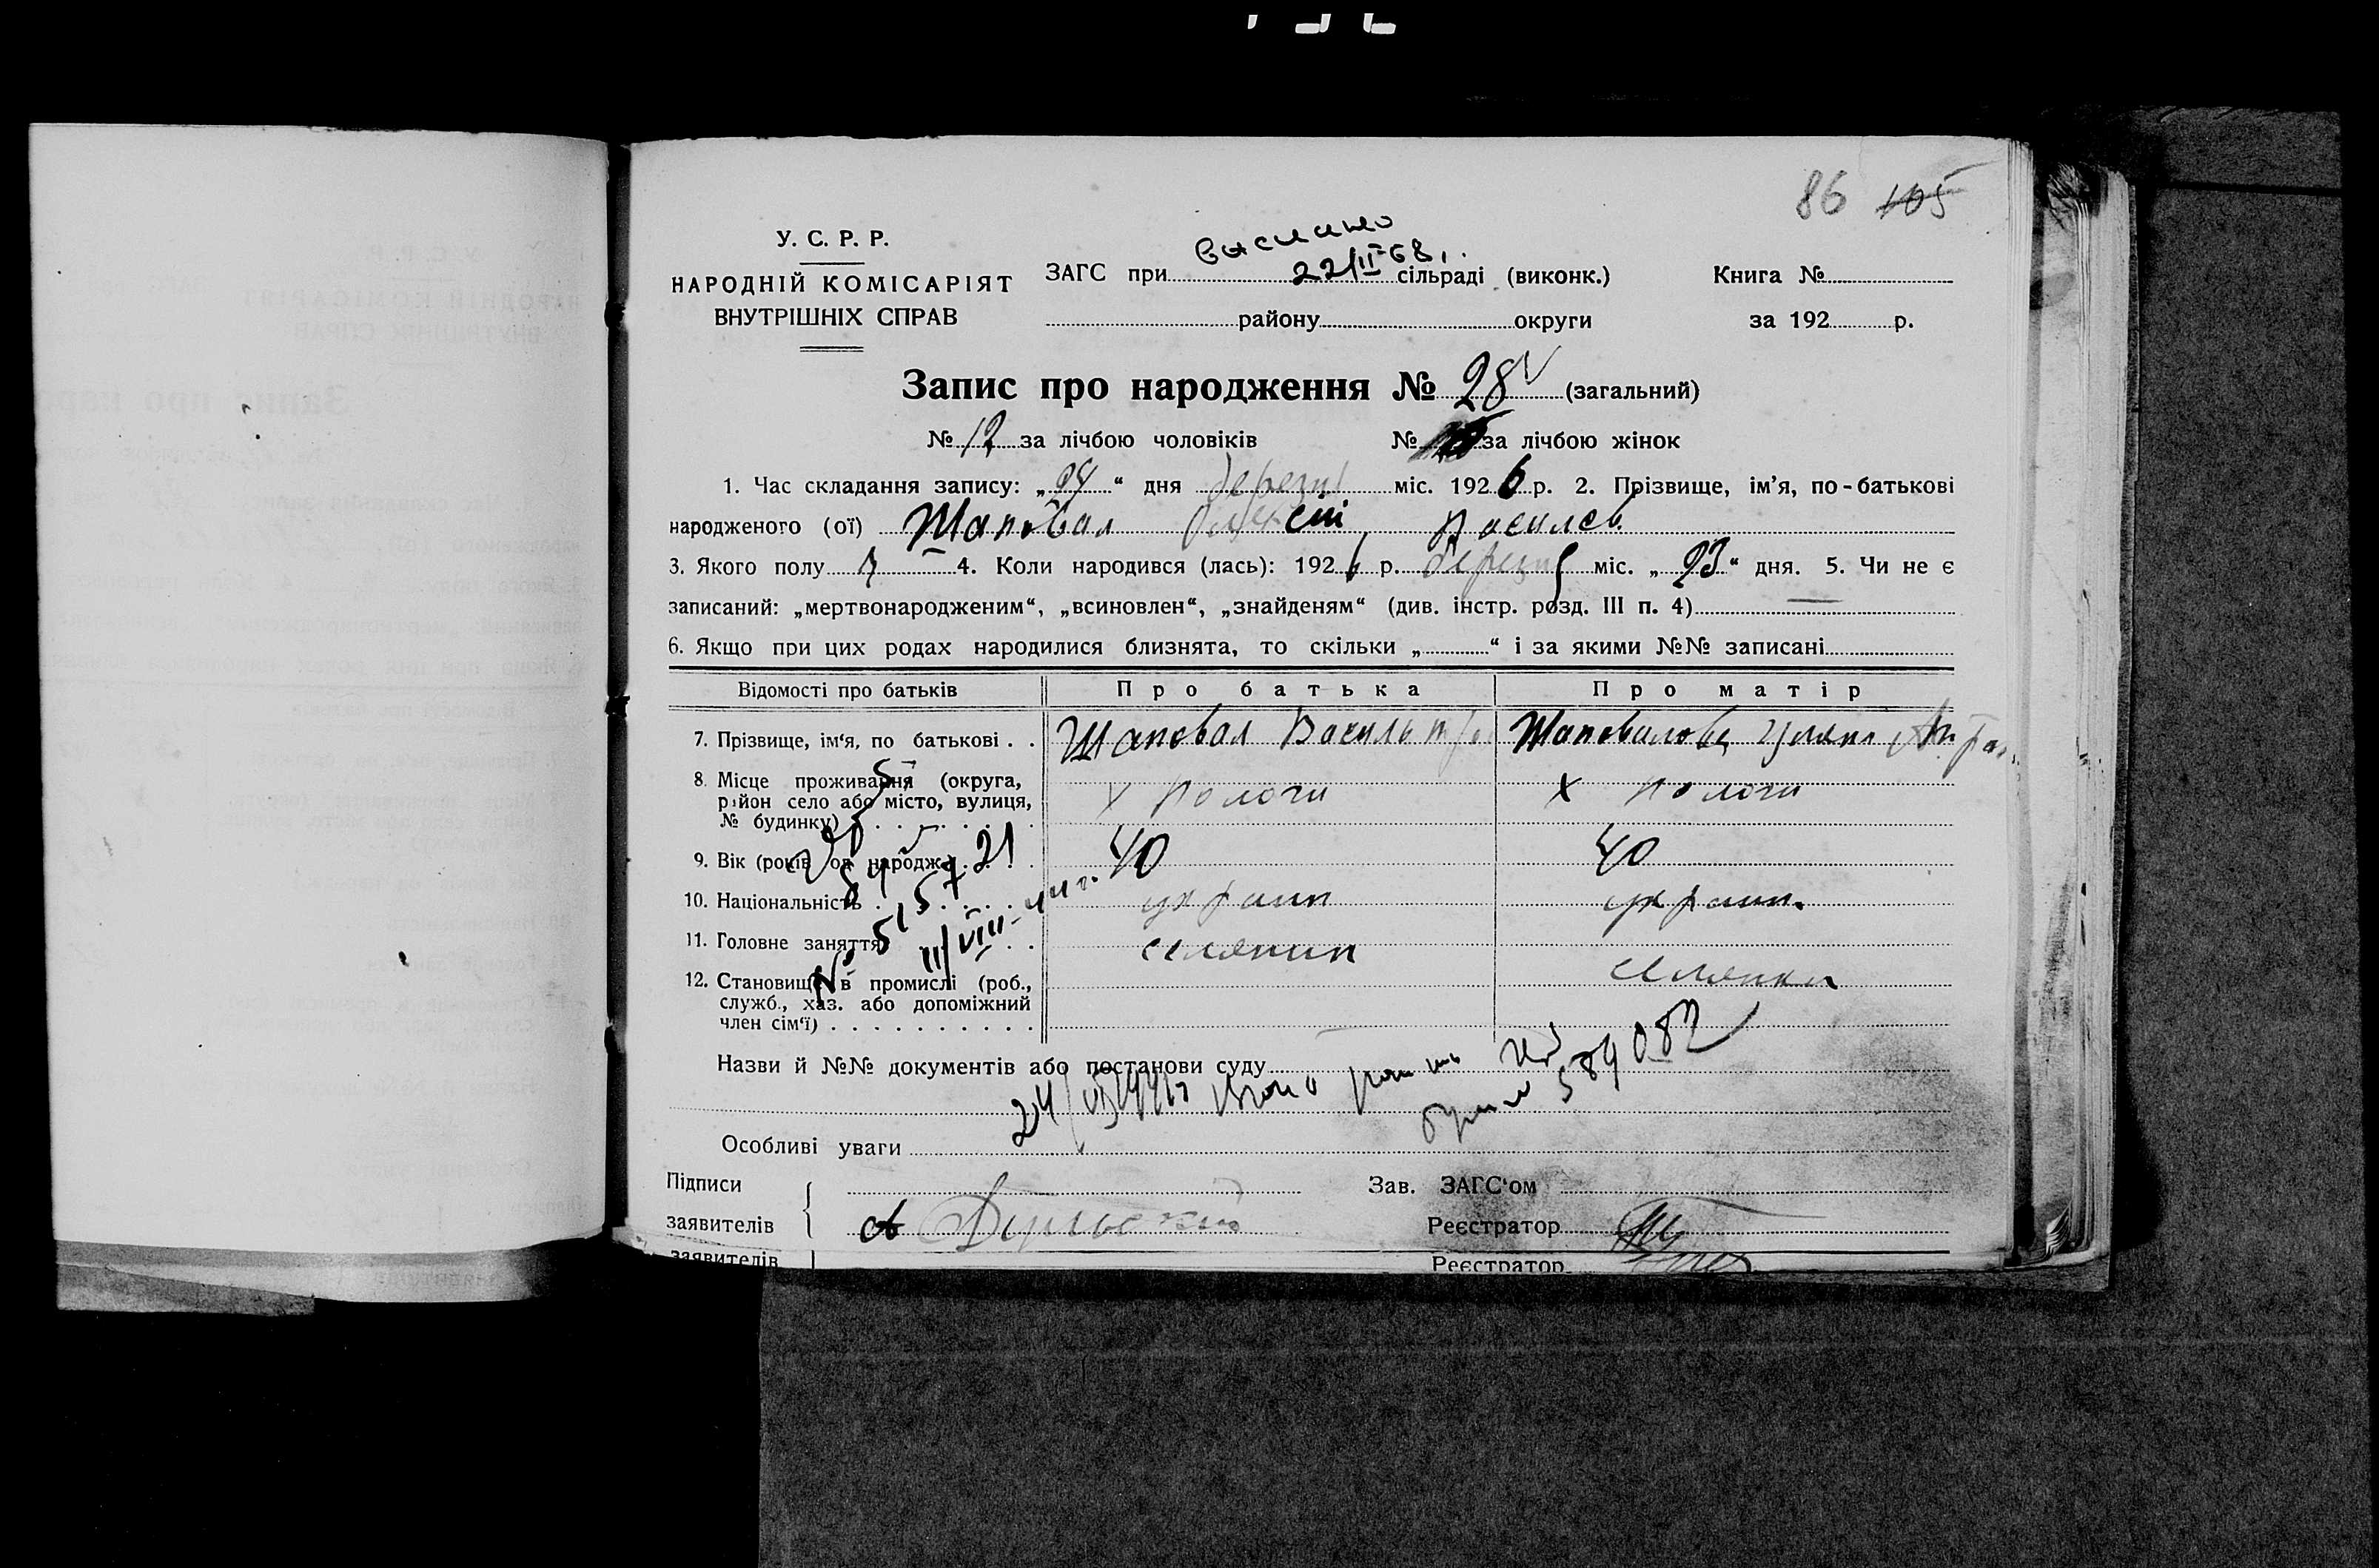 86 105
У. С. Р. Р.
НАРОДНІЙ КОМІСАРІЯТ
ВНУТРІШНІХ СПРАВ
выслано
22/II-68
ЗАГС при сільраді (виконк.)
району округи
Книга №
за 192 р.
Запис про народження № 28 (загальний)
№ 12 за лічбою чоловіків № за лічбою жінок
1. Час складання запису: „24“ дня березня міс. 1926 р. 2. Прізвище, ім’я, по-батькові
народженого (ої) Шаповал Олексій Васильев.
3. Якого полу ч 4. Коли народився (лась): 1926 р. березня міс. „23“ дня. 5. Чи не є
записаний: „мертвонародженим“, „всиновлен“, „знайденям“ (див. інстр. розд. III п. 4)
6. Якщо при цих родах народилися близнята, то скільки „ “ і за якими №№ записані
Відомості про батьків Про батька Про матір
7. Прізвище, ім‘я, по батькові . . Шаповал Василь Шаповалова Уляна
8. Місце проживання (округа,
район село або місто, вулиця,
№ будинку) х Пологи х Пологи
9. Вік (років од народж.) 40 40
10. Національність украин украин.
11. Головне заняття селянин
селянка
12. Становище в промислі (роб.,
служб., хаз. або допоміжний
член сім‘ї)
Назви й №№ документів або постанови суду
№ 589082
Особливі уваги
Підписи
заявителів
Зав. ЗАГС‘ом
Реєстратор
заявителів
Реєстратор